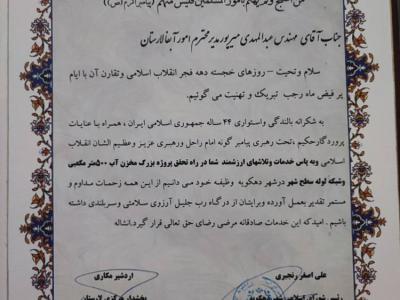 من اصبح و لم یهتم بامور المسلمین فلیس منهم (پیامبر اکرم (ص))
جناب آقای مهندس عبدالمهدی میرپور مدیر محترم امور آبفا لارستان
سلام و تحیت - روزهای خجسته دهه فجر انقلاب اسلامی و تقارن آن با ایام
پر فیض ماه رجب تبریک و تهنیت می گوئیم.
به شکرانه بالندگی واستواری ۴۴ ساله جمهوری اسلامی ایران ، همراه با عنایات
پروردگارحکیم ،تحت رهبری پیامبر گونه امام راحل ورهبری عزیز و عظیم الشان انقلاب
اسلامی وبه پاس خدمات وتلاشهای ارزشمند شما در راه تحقق پروژه بزرگ مخزن آب ۵۰۰متر مکعبی
وشبکه لوله سطح شهر درشهر دهکویه وظیفه خود می دانیم از این همه زحمات مداوم و
مستمر تقدیر بعمل آورده وبرایتان از درگاه رب جلیل آرزوی سلامتی وسربلندی داشته
باشیم . امیدکه این خدمات صادقانه مرضی رضای حق تعالی قرار گیرد.انشاله
علی اصغر رنجبری
اردشیر مکاری
رئیس شورای اسلامی شهر دهکویه
بخشدار مرکزی لارستان